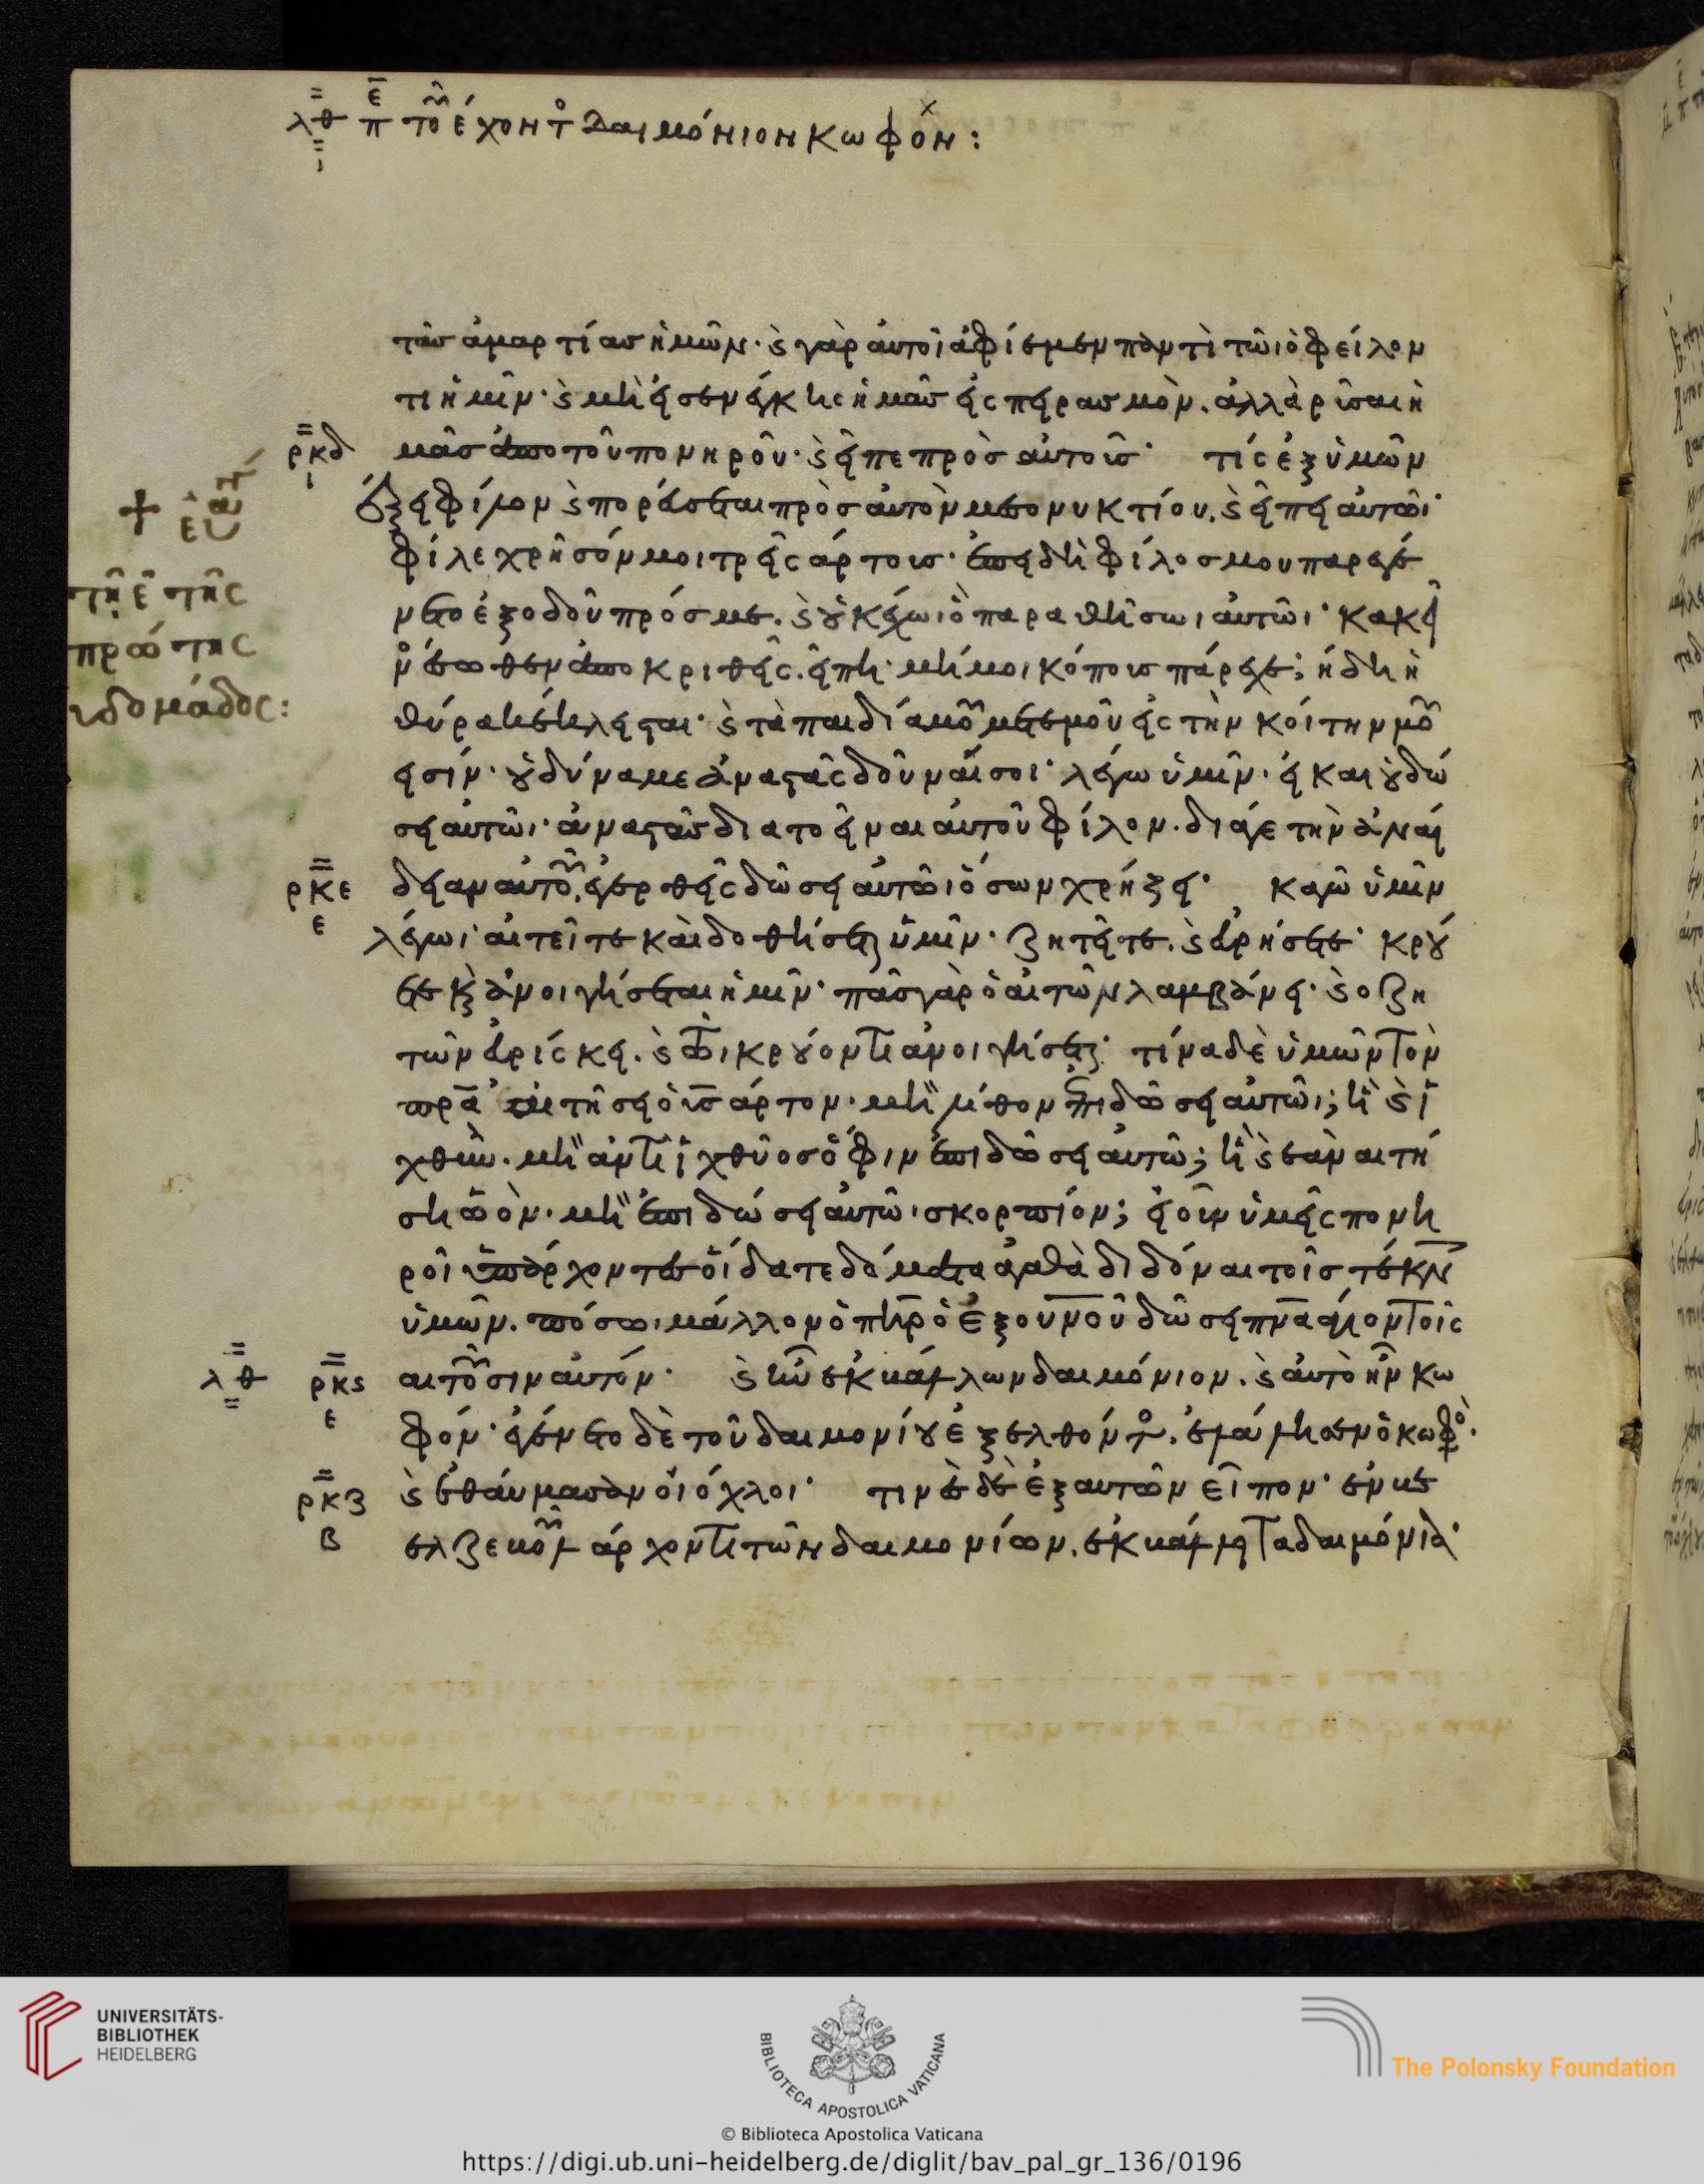 λθ π τοῦ ἔχοντος δαιμόνιον κωφόν:
τὰσ ἁμαρτίασ ἡμῶν· ϗ γὰρ αὐτοὶ ἀφίεμεν παντὶ τῶι ὀφείλον
τι ἡμῖν· ϗ μὴ εἰσενέγκηις ἡμᾶσ εἰς πειρασμὸν. ἀλλὰ ρῦσαι ἡ
ρκδ ι μᾶσ ἀπο τοῦ πονηροῦ· ϗ εἶπε πρὸσ αὐτοὺσ· τίς ἐξ ὑμῶν
ἕξει φίλον ϗ πορεύσεται πρὸσ αὐτὸν μεσονυκτίου. ϗ εἴπει αὐτῶι·
φίλε χρῆσόν μοι τρεῖς άρτουσ· ἐπειδὴ φίλοσ μου παρεγέ
νετο ἐξ οδοῦ πρόσ με. ϗ οὐκ ἔχωι ὃ παραθήσωι αὐτῶι· κακεῖ
νοσ ἔσωθεν ἀποκριθεὶς. εἴπη· μή μοι κόπουσ πάρεχε; ἤδη ἡ
θύρα κέκλεισται· ϗ τὰ παιδία μου μετεμοῦ εἰς τὴν κοίτην μου
εισίν· οὐ δύναμε ἀναστὰς δοῦναί σοι· λέγω ὑμῖν· εἰ και οὐ δώ
σει αὐτῶι· ἀναστὰσ δια το εἶναι αυτοῦ φίλον. διάγε τὴν ἀναί
ρκε ε δειαν αὐτοῦ, ἐγερθεὶς δώσει αὐτῶι ὅσων χρήζει· καγὼ ὑμῖν
λέγωι· αιτεῖτε καὶ δοθήσεται ὑμῖν· ζητεῖτε. ϗ εὑρήσετε· κρού
ετε ϗ ἀνοιγήσεται ἡμῖν· πᾶσ γὰρ ὁ αἰτῶν λαμβάνει· ϗ ο ζη
τῶν εὑρίςκει. ϗ τῶι κρούοντι ἀνοιγήσεται· τίνα δὲ ὑμῶν τὸν
πρα αἰτήσει ὁ υσ άρτον. μὴ λίθον ἐπιδώσει αὐτῶι; ἢ ϗ ἰ
χθὺν. μὴ ἀντὶ ϊχθύοσ ὄφιν ἐπιδώσει αυτῶ; ἢ ϗ εαν αιτή
ση ωὸν. μὴ ἐπιδώσει αὐτῶι σκορπίον; εἰ οὖν ὑμεῖς πονη
ροὶ ὑπάρχοντεσ οἴδατε δόματα αγαθὰ διδόναι τοῖσ τέκν
ὑμῶν. πόσωι μάλλον ὁ πηρ ὁ ἐξ ουνοῦ δώσει πνα αγιον τοῖς
λθ ρκς ε αιτοῦσιν αὐτόν· ϗ ἦν ἐκβάλλων δαιμόνιον. ϗ αὐτὸ ἦν κω
φόν· ἐγένετο δὲ τοῦ δαιμονίου ἐξελθόντοσ. ἐλάλησεν ὁ κωφὸσ·
ρκζ β ϗ ἐθάυμασαν οἱ όχλοι· τινὲσ δὲ ἐξ αυτῶν εἶπον· ἐν βε
ελζεβοὺλ άρχοντι τῶν δαιμονίων. ἐκβάλλει τα δαιμόνια·
+
τῆι ε τῆς
πρώτης
ιδομάδος:
UNIVERSITÄTS-
BIBLIOTHEK
HEIDELBERG
BIBLIOTECA APOSTOLICA VATICANA
The Polonsky Foundation
© Biblioteca Apostolica Vaticana
https://digi.ub.uni-heidelberg.de/diglit/bav_pal_gr_136/0196